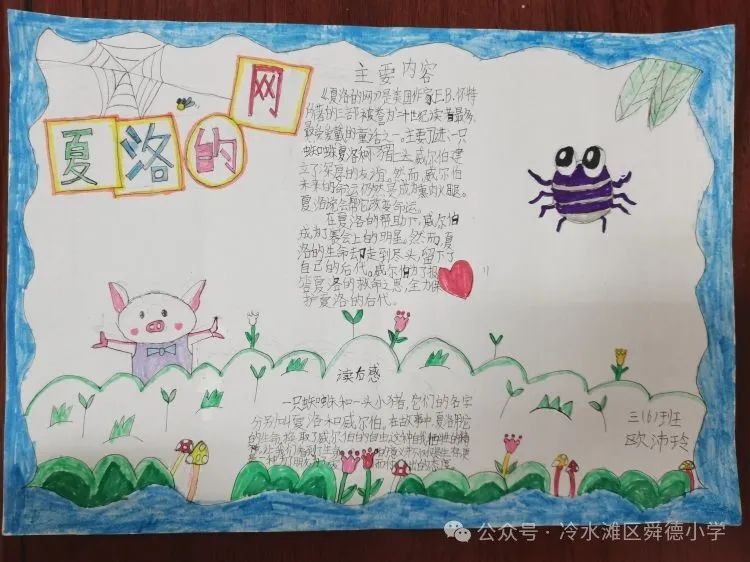 夏洛的网
主要内容
《夏洛的网》是美国作家E.B.怀特
所著的三部被誉为二十世纪读者最多、
最受爱戴的童话之一。主要讲述一只
蜘蛛夏洛和小猪上
威尔伯建
立了深厚的友谊。然而,威尔伯
未来的命运仍然是成为熏肉火腿。
夏洛说会帮它改变命运。
在夏洛的帮助下,威尔伯
成为了赛会上的明星。然而,夏
洛的生命却走到尽头,留下了
自己的后代。威尔伯为了报
答夏洛的救命之恩,全力保
护夏洛的后代。
读后感
一只蜘蛛和一头小猪,它们的名字
分别叫夏洛和威尔伯,在故事中夏洛用它
的生命换取了威尔伯的
三161班
欧沛玲
公众号·冷水滩区舜德小学